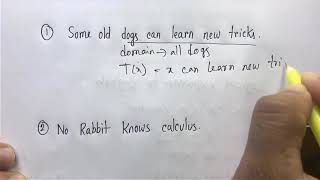 ① Some old dogs can learn new tricks.
domain → all dogs
T(x) = x can learn new tri
② No Rabbit knows calculus.